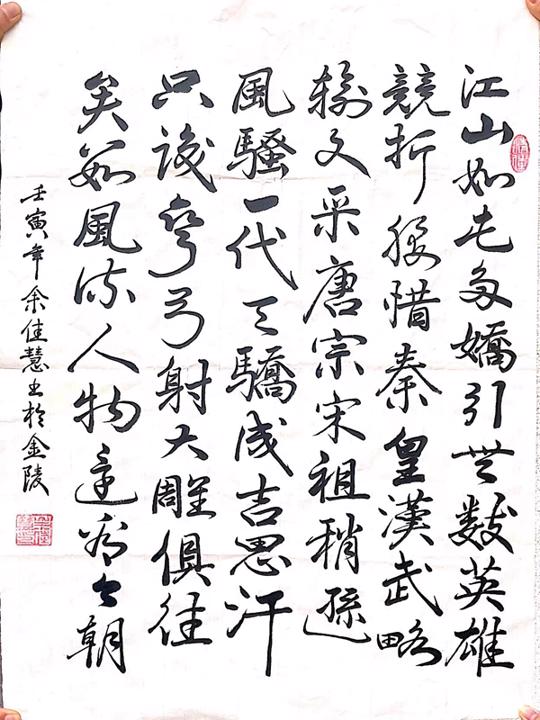 江山如此多嬌引無數英雄
競折腰惜秦皇漢武略
輸文采唐宗宋祖稍遜
風騷一代天驕成吉思汗
只識彎弓射大雕俱往
矣數風流人物還看今朝
壬寅年余佳慧书於金陵